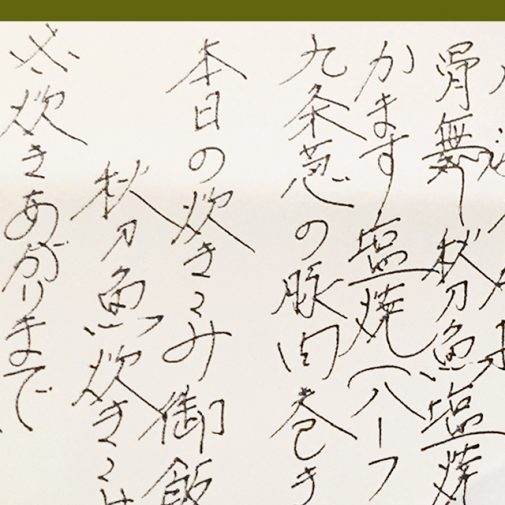 骨無し秋刀魚塩焼
かます塩焼(ハーフ
九条葱の豚肉巻き
本日の炊きこみ御飯
秋刀魚炊きこ
※炊きあがりまで